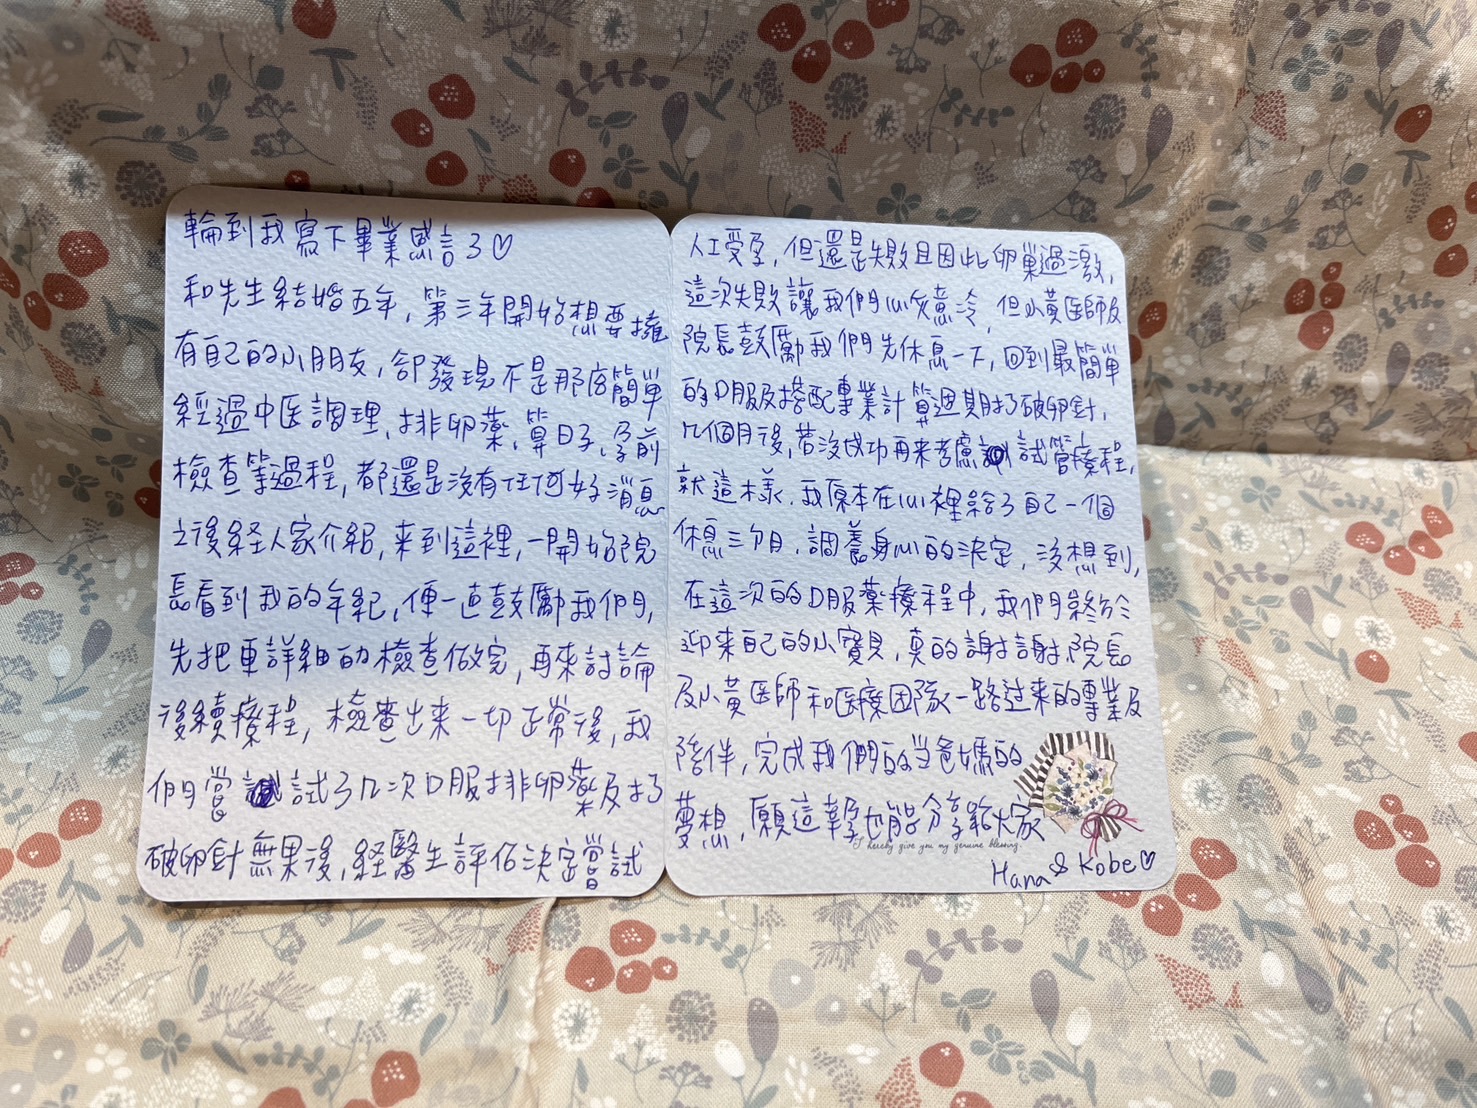 輪到我寫下畢業感言了♡
和先生結婚五年，第三年開始想要擁
有自己的小朋友，卻發現不是那麼簡單
經過中医調理、排卵藥、算日子、孕前
檢查等過程，都還是沒有任何好消息
之後経人家介紹，来到這裡，一開始院
長看到我的年紀，便一直鼓勵我們，
先把更詳細的檢查做完，再來討論
後續療程，檢查出來一切正常後，我
們嘗試了几次口服排卵藥及打了
破卵針無果後，経醫生評估決定嘗試
人工受孕，但還是失敗且因此卵巢過激，
這次失敗讓我們心灰意冷，但小黃医師及
院長鼓勵我們先休息一下，回到最簡單
的口服及搭配專業計算週期打了破卵針，
几個月後，若沒成功再来考慮試管療程，
就這樣，我原本在心裡給了自己一個
休息三个月，調養身心的決定，沒想到，
在這次的口服藥療程中，我們終於
迎来自己的小寶貝，真的謝謝院長
及小黃医師和医療团隊一路过来的專業及
陪伴，完成我們的当爸媽的
夢想，願這幸孕也能分享給大家
I hereby give you my genuine blessing.
Hana & Kobe♡